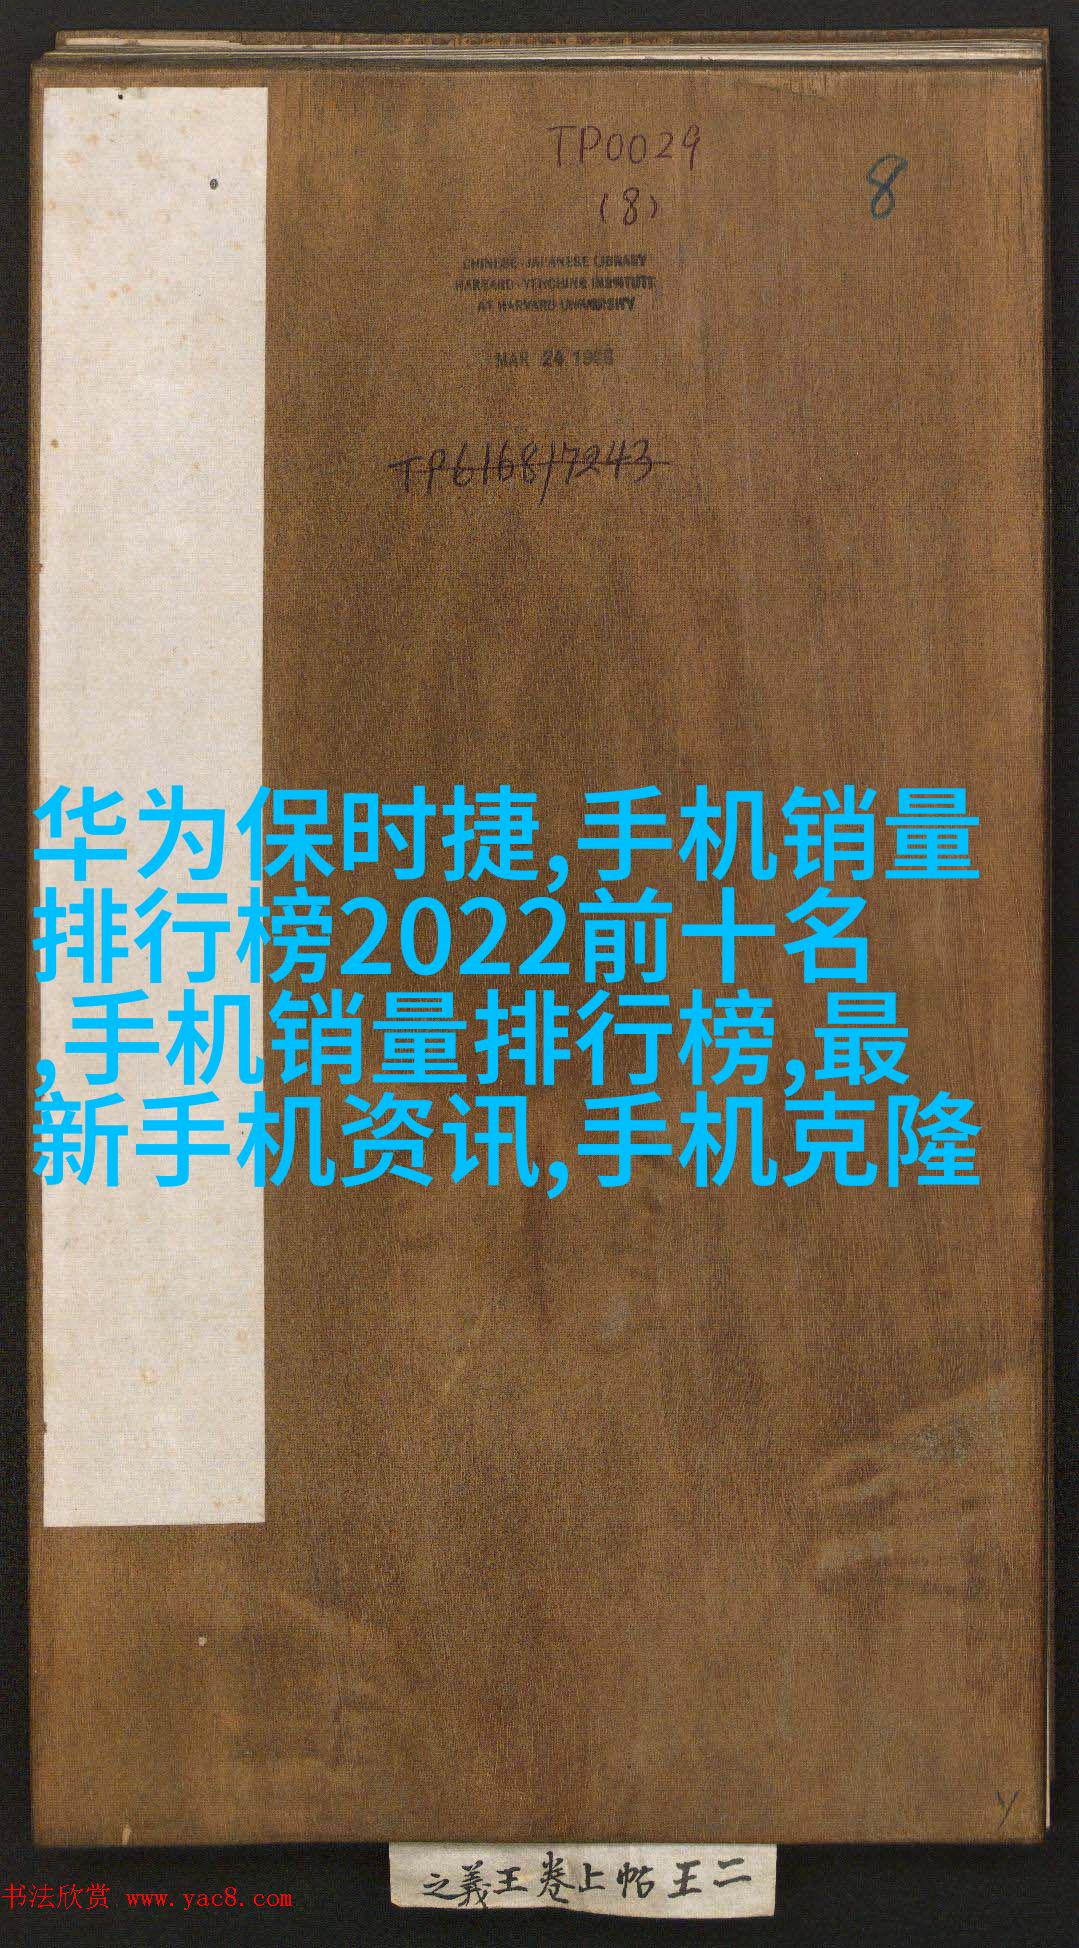 TP0029
(8)
8
CHINESE-JAPANESE LIBRARY
HARVARD-YENCHING INSTITUTE
AT HARVARD UNIVERSITY
MAR 24 19
TP6168/7243
华为保时捷,手机销量
排行榜2022前十名
,手机销量排行榜,最
新手机资讯,手机克隆
二王帖上卷王羲之
书法欣赏 www.yac8.com